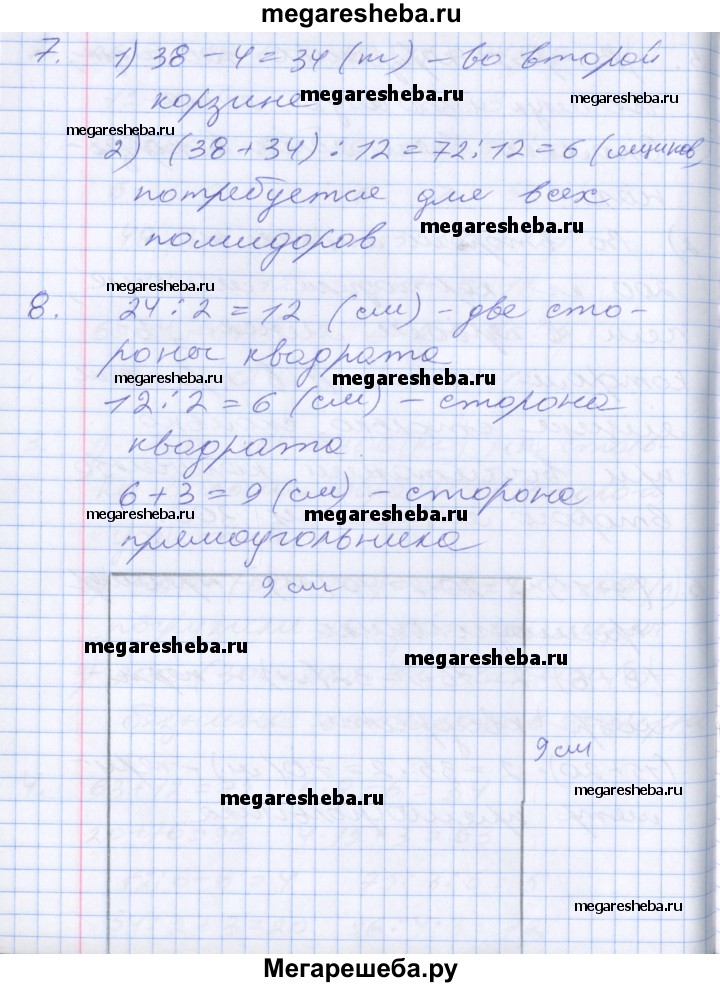 megaresheba.ru
7. 1) 38 - 4 = 34 (т) - во второй
корзине
megaresheba.ru
megaresheba.ru
megaresheba.ru
2) (38 + 34) : 12 = 72 : 12 = 6 (ящиков)
потребуется для всех
megaresheba.ru
помидоров
megaresheba.ru
8. 24 : 2 = 12 (см) - две сто-
роны квадрата
megaresheba.ru
megaresheba.ru
12 : 2 = 6 (см) - сторона
квадрата.
6 + 3 = 9 (см) - сторона
megaresheba.ru
megaresheba.ru
прямоугольника
9 см
megaresheba.ru
megaresheba.ru
9 см
megaresheba.ru
megaresheba.ru
megaresheba.ru
Мегарешеба.ру